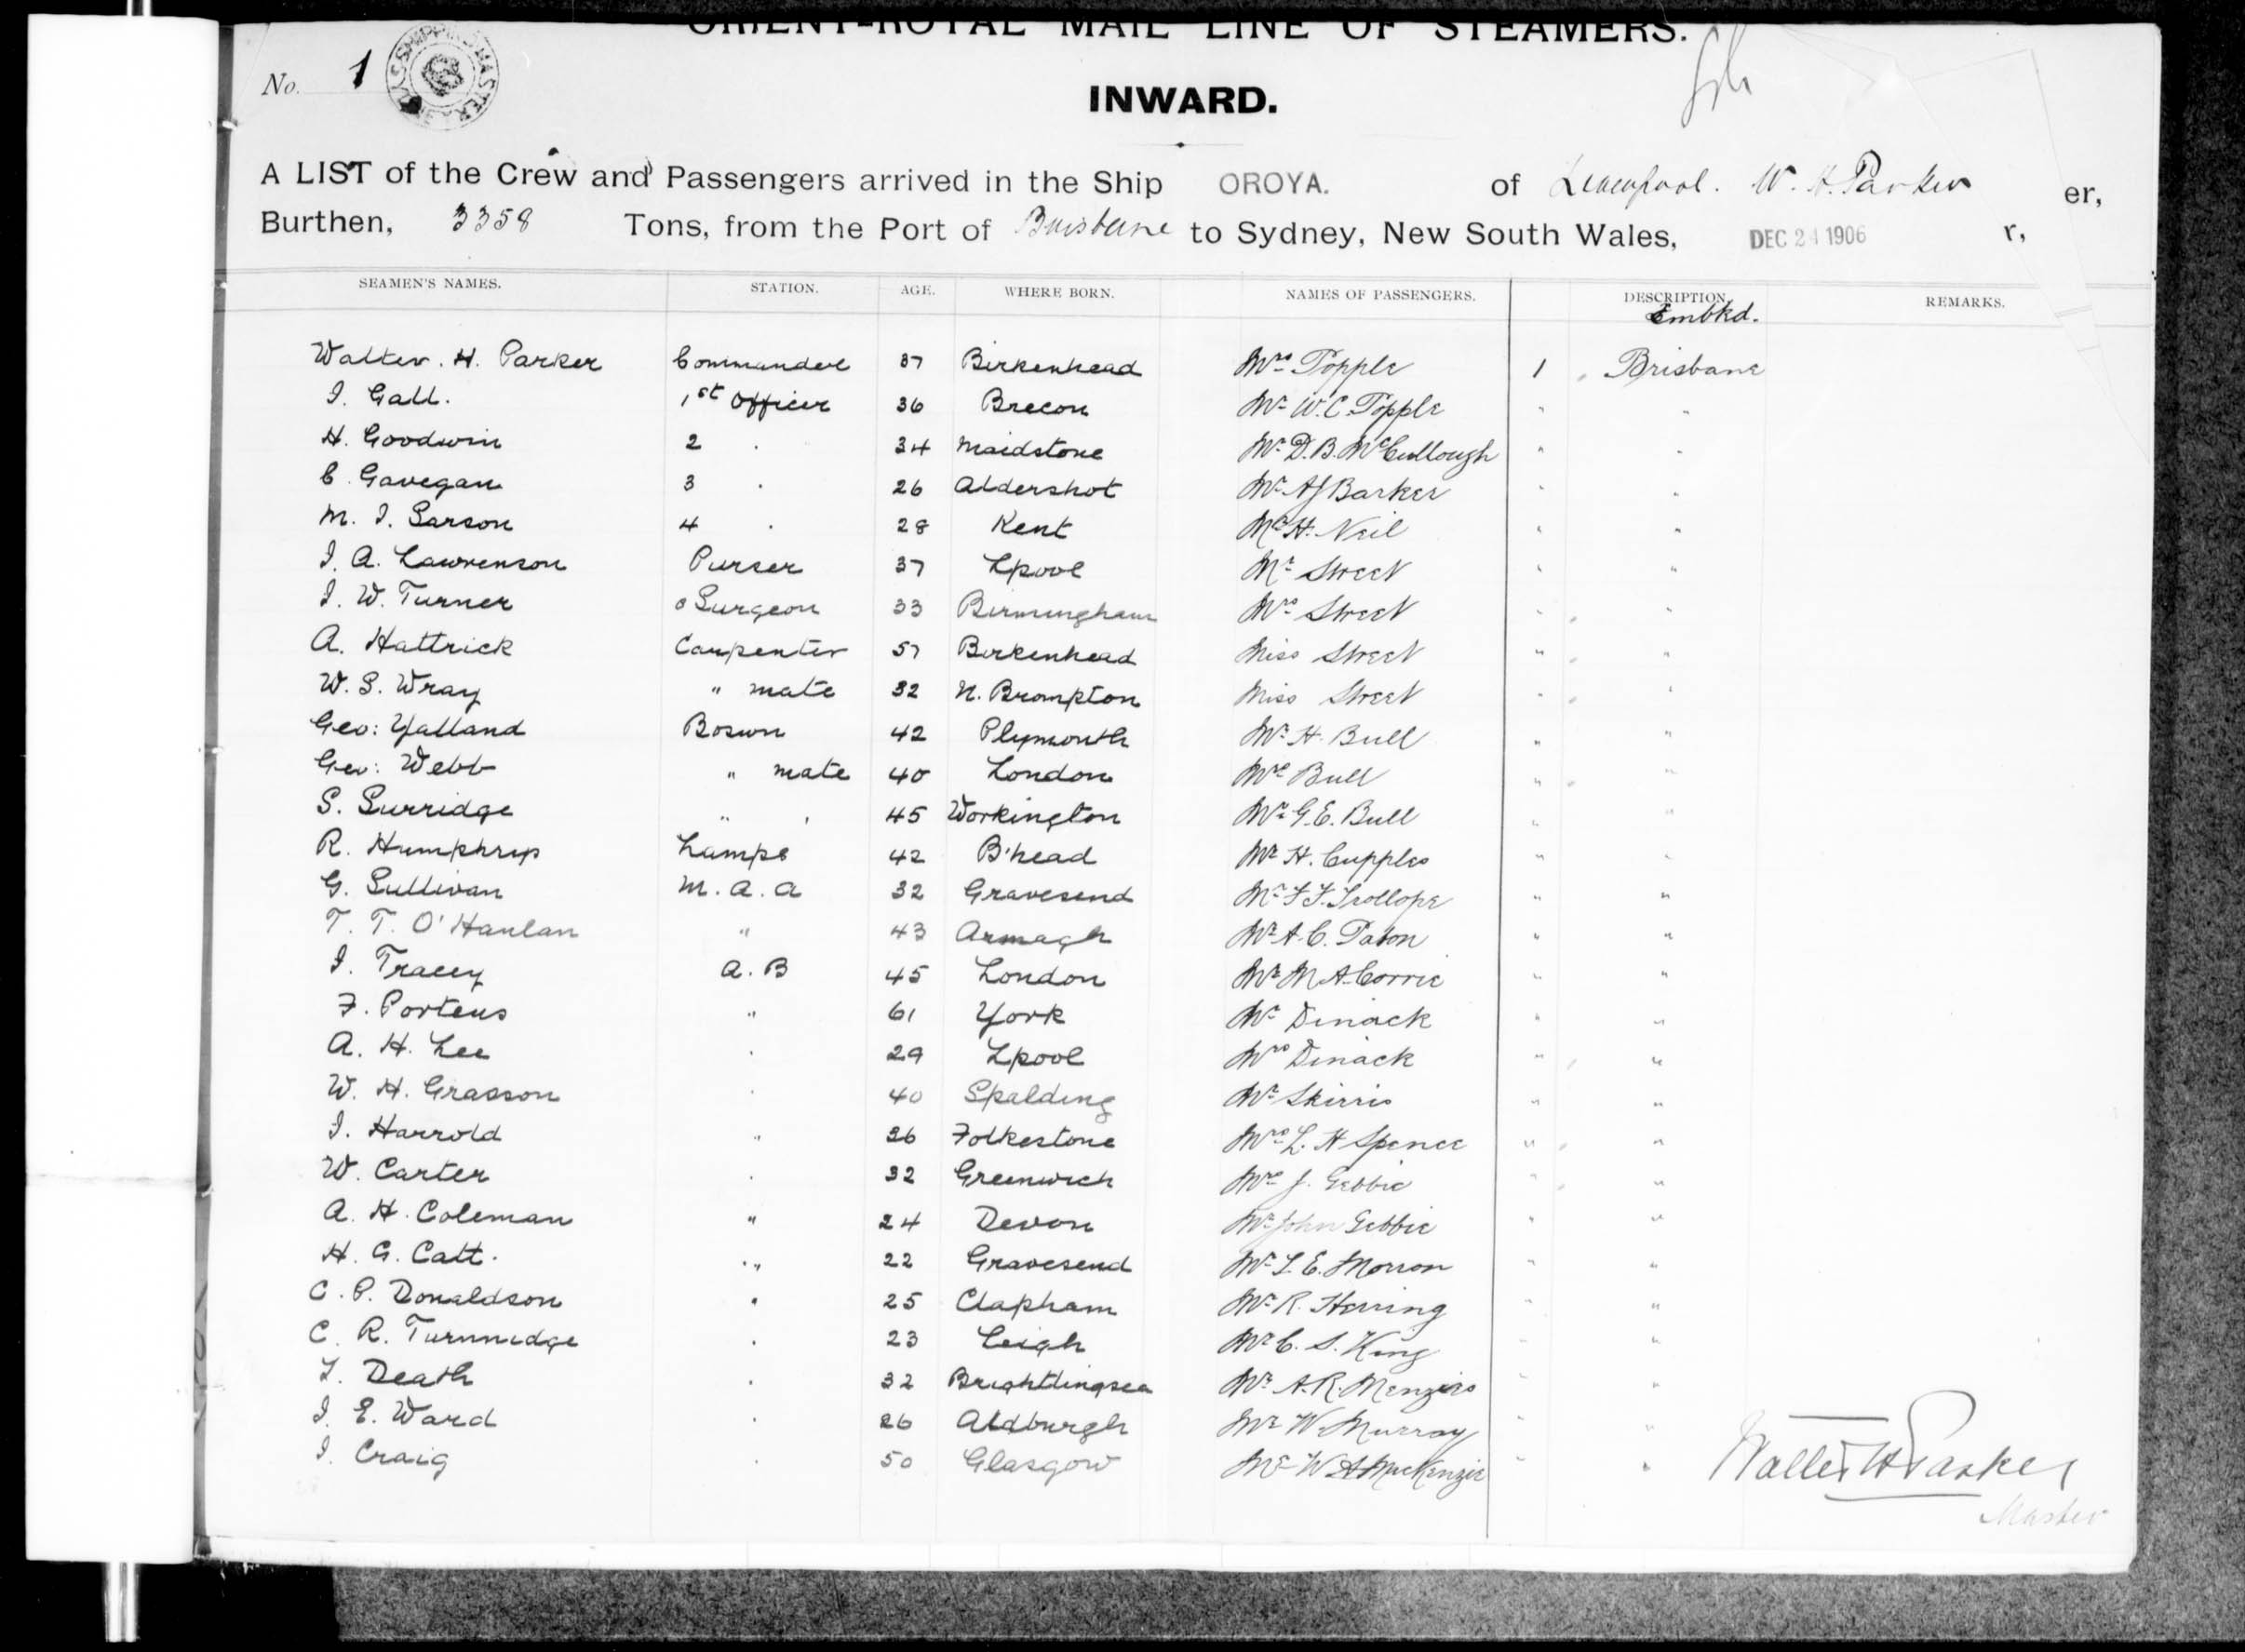 ORIENT-ROYAL MAIL LINE OF STEAMERS.
No. 1
INWARD.
A LIST of the Crew and Passengers arrived in the Ship OROYA. of Liverpool. W. H. Parker er,
Burthen, 3358 Tons, from the Port of Brisbane to Sydney, New South Wales, DEC 24 1906 r,
SEAMEN'S NAMES. STATION. AGE. WHERE BORN. NAMES OF PASSENGERS. DESCRIPTION. REMARKS.
Embkd.
Walter. H. Parker Commander 37 Birkenhead Mrs Popple 1 Brisbane
J. Gall. 1st Officer 36 Brecon Mr W. C. Popple " "
H. Goodwin 2 " 34 Maidstone Mr D. B. McCullough " "
C. Gavegan 3 " 26 Aldershot Mr A J Barker " "
M. J. Sarson 4 " 28 Kent Mr H. Neil " "
J. A. Lawrenson Purser 37 Lpool Mr Street " "
J. W. Turner Surgeon 33 Birmingham Mrs Street " "
A. Hattrick Carpenter 57 Birkenhead Miss Street " "
W. S. Wray " mate 32 N. Brompton Miss Street " "
Geo: Yalland Bosun 42 Plymouth Mr H. Bull " "
Geo: Webb " mate 40 London Mrs Bull " "
S. Surridge " " 45 Workington Mr G. E. Bull " "
R. Humphrys Lamps 42 B'head Mr H. Cupples " "
G. Sullivan M. A. A 32 Gravesend Mr F. F. Trollope " "
T. T. O'Hanlan " 43 Armagh Mr A. C. Paton " "
J. Tracey A. B 45 London Mr M. A. Corrie " "
F. Porteus " 61 York Mr Dinack " "
A. H. Lee " 29 Lpool Mrs Dinack " "
W. H. Grasson " 40 Spalding Mr Skirris " "
J. Harrold " 26 Folkestone Mrs L. H Spence " "
W. Carter " 32 Greenwich Mrs J. Gebbie " "
A. H. Coleman " 24 Devon Mr John Gebbie " "
H. G. Catt. " 22 Gravesend Mr L. E. Morron " "
C. P. Donaldson " 25 Clapham Mr R. Herring " "
C. R. Turnnidge " 23 Leigh Mr C. S. King " "
T. Death " 32 Brightlingsea Mr A. R. Menzies " "
J. E. Ward " 26 Aldburgh Mr W. Murray " "
J. Craig " 50 Glasgow Mr W A MacKenzie " "
Walter H Parker
Master